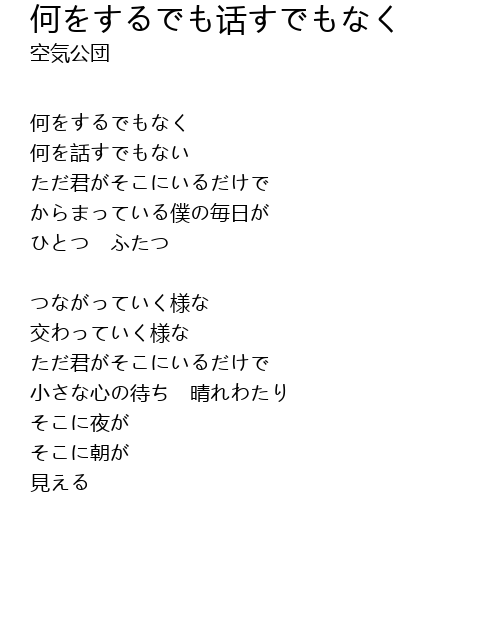 何をするでも话すでもなく
空気公団
何をするでもなく
何を話すでもない
ただ君がそこにいるだけで
からまっている僕の毎日が
ひとつ　ふたつ
つながっていく様な
交わっていく様な
ただ君がそこにいるだけで
小さな心の待ち　晴れわたり
そこに夜が
そこに朝が
見える